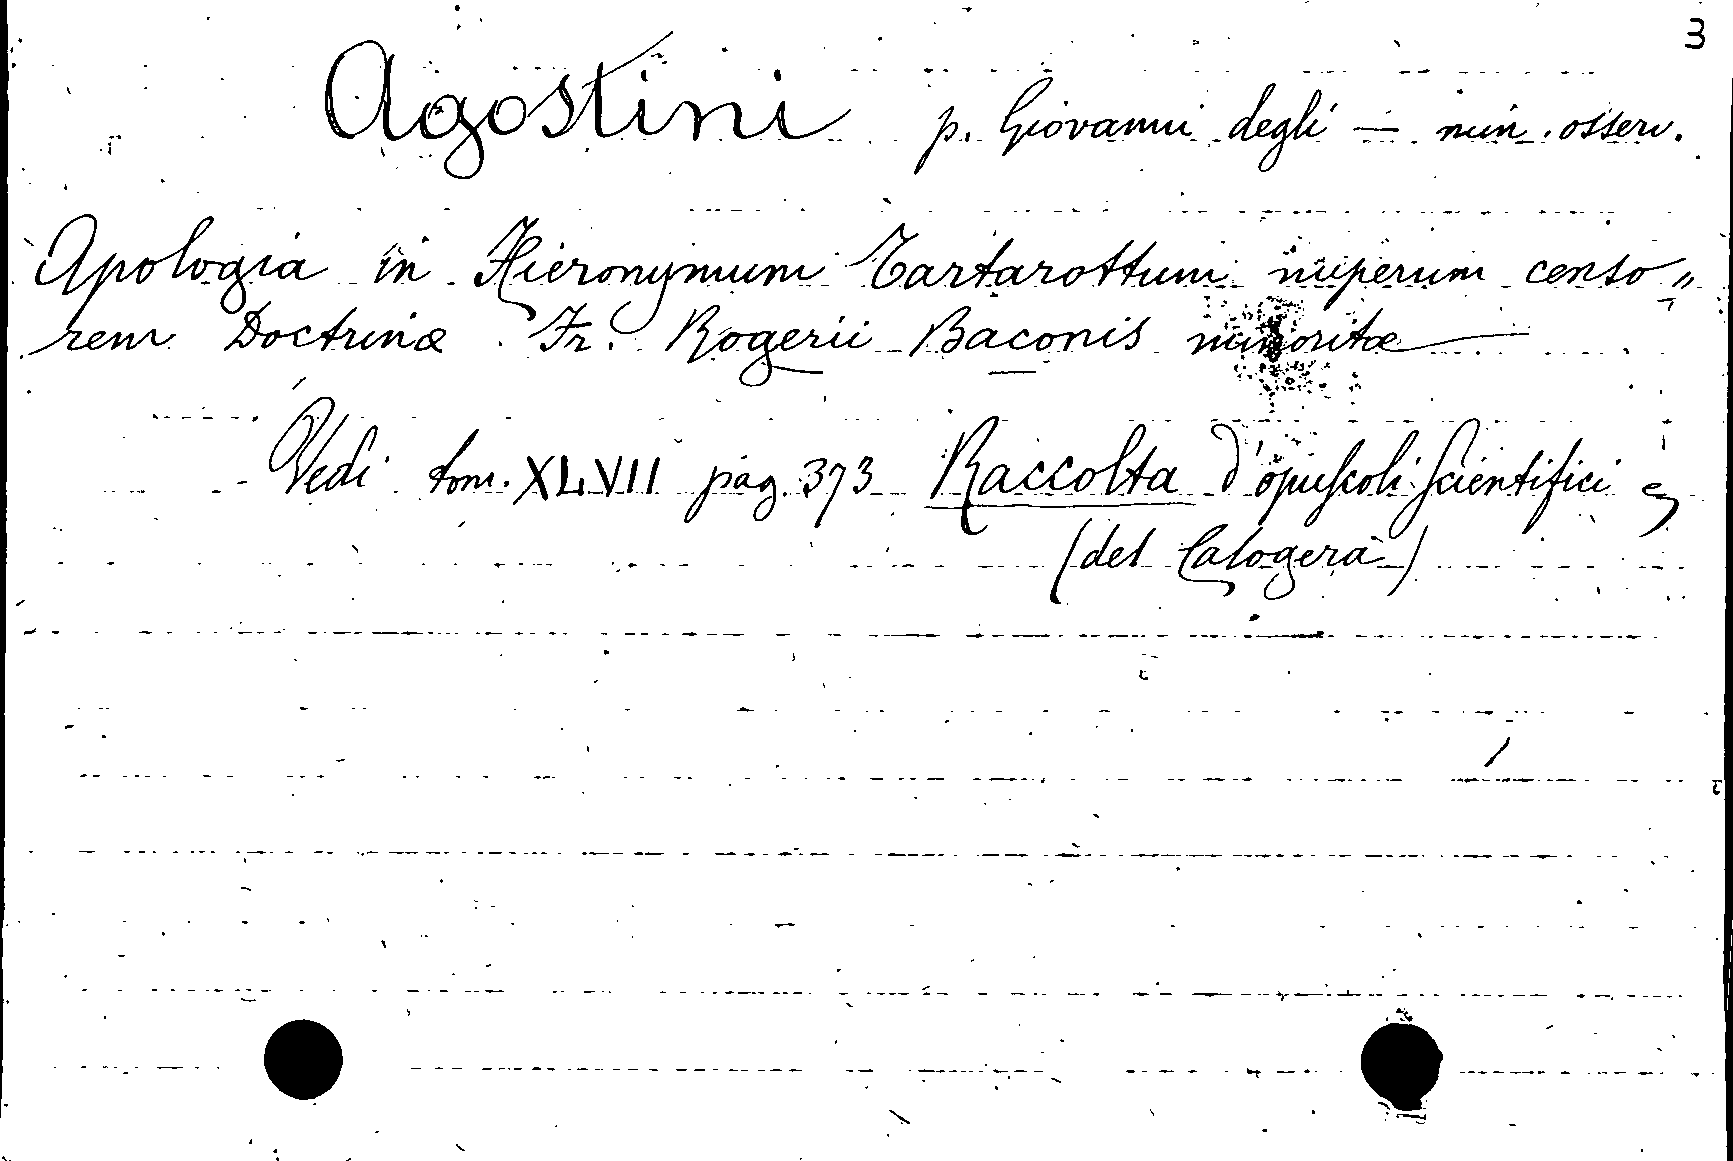 3
Agostini p. Giovanni degli — min. osserv.
Apologia in Hieronymum Tartarottum nuperum censo„
rem Doctrinæ Fr. Rogerii Baconis minoritæ
Vedi tom. XLVII pag. 373 Raccolta d'opuscoli Scientifici
(del Calogerà)